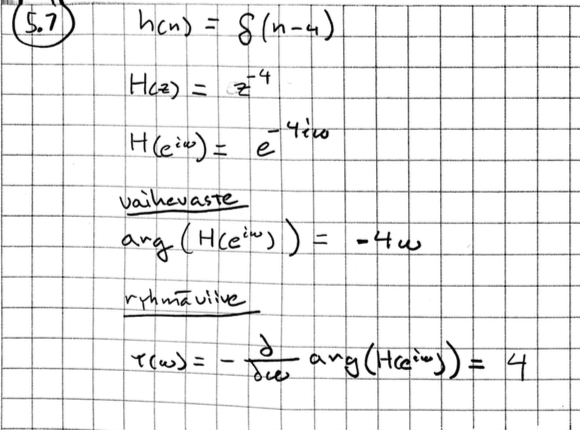 5.7 h(n) = δ(n-4)
H(z) = z^-4
H(e^iω) = e^-4iω
vaihevaste
arg(H(e^iω)) = -4ω
ryhmäviive
τ(ω) = - ∂/∂ω arg(H(e^iω)) = 4